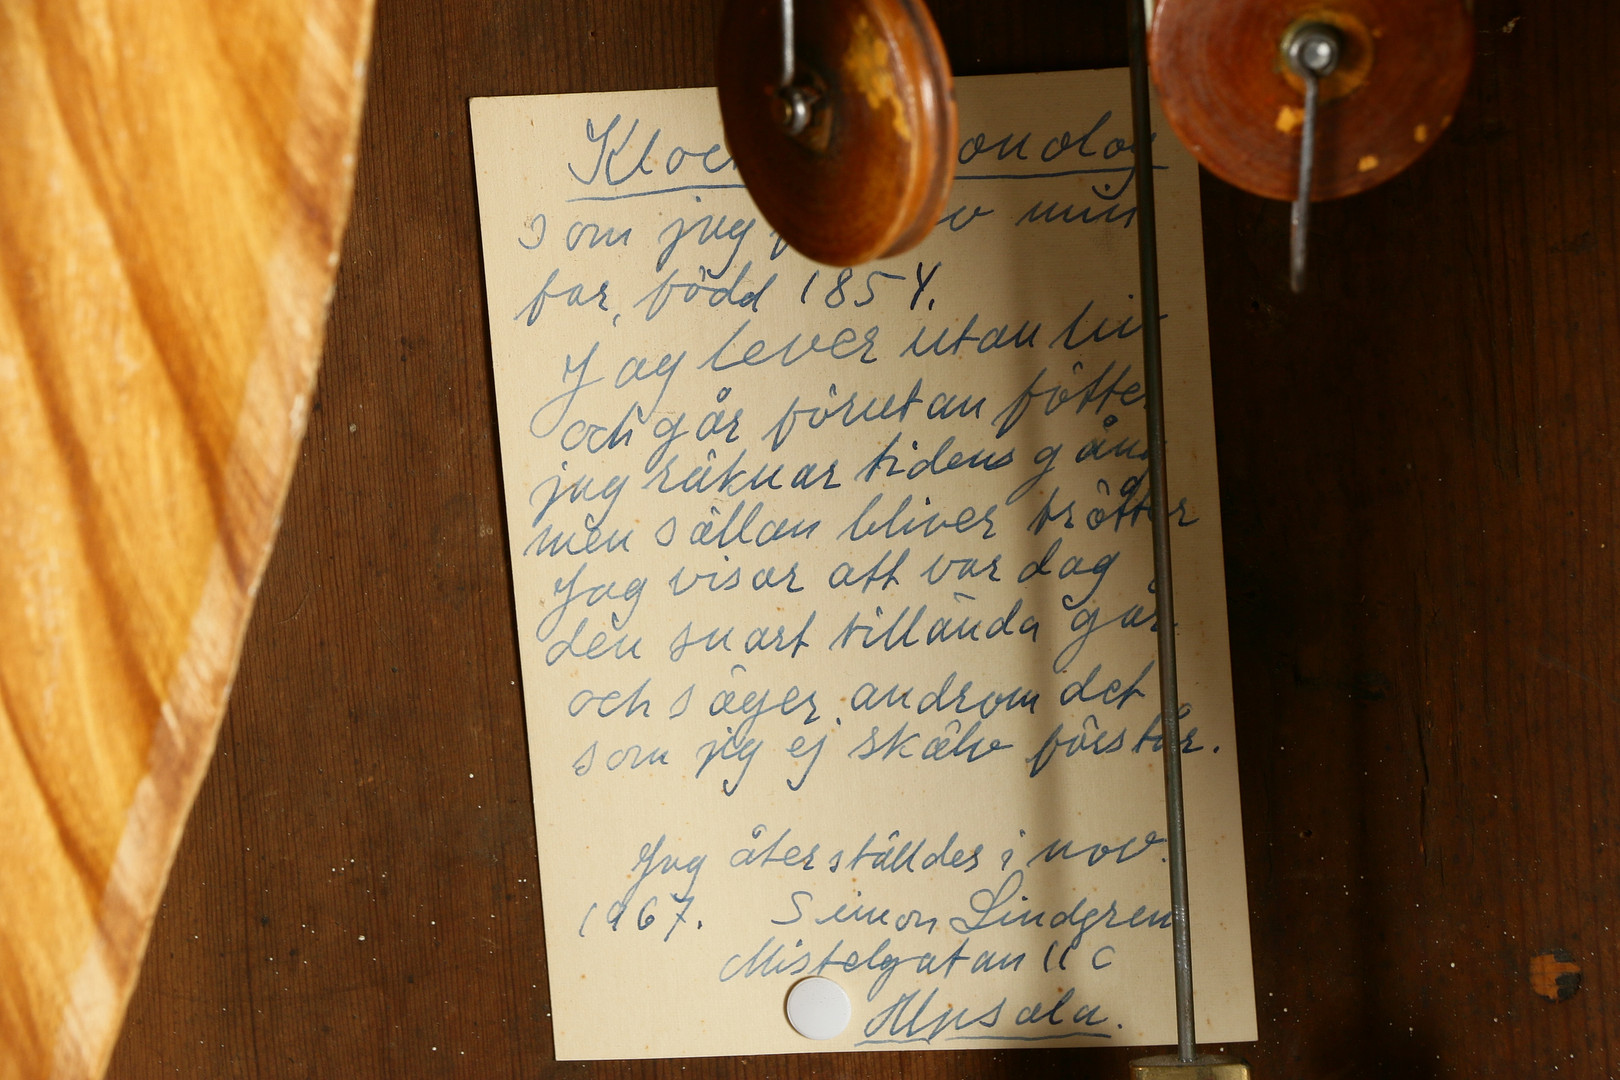 Kloc onolog
som jag av min
far, född 1854.
Jag lever utan liv
och går förutan fötter
jag räknar tidens gång
men sällan bliver trötter
Jag visar att var dag
den snart tillända går
och säger androm det
som jag ej skälv förstår.
Jag återställdes i nov.
1967. Simon Lindgren
Mistelgatan 11 C
Upsala.